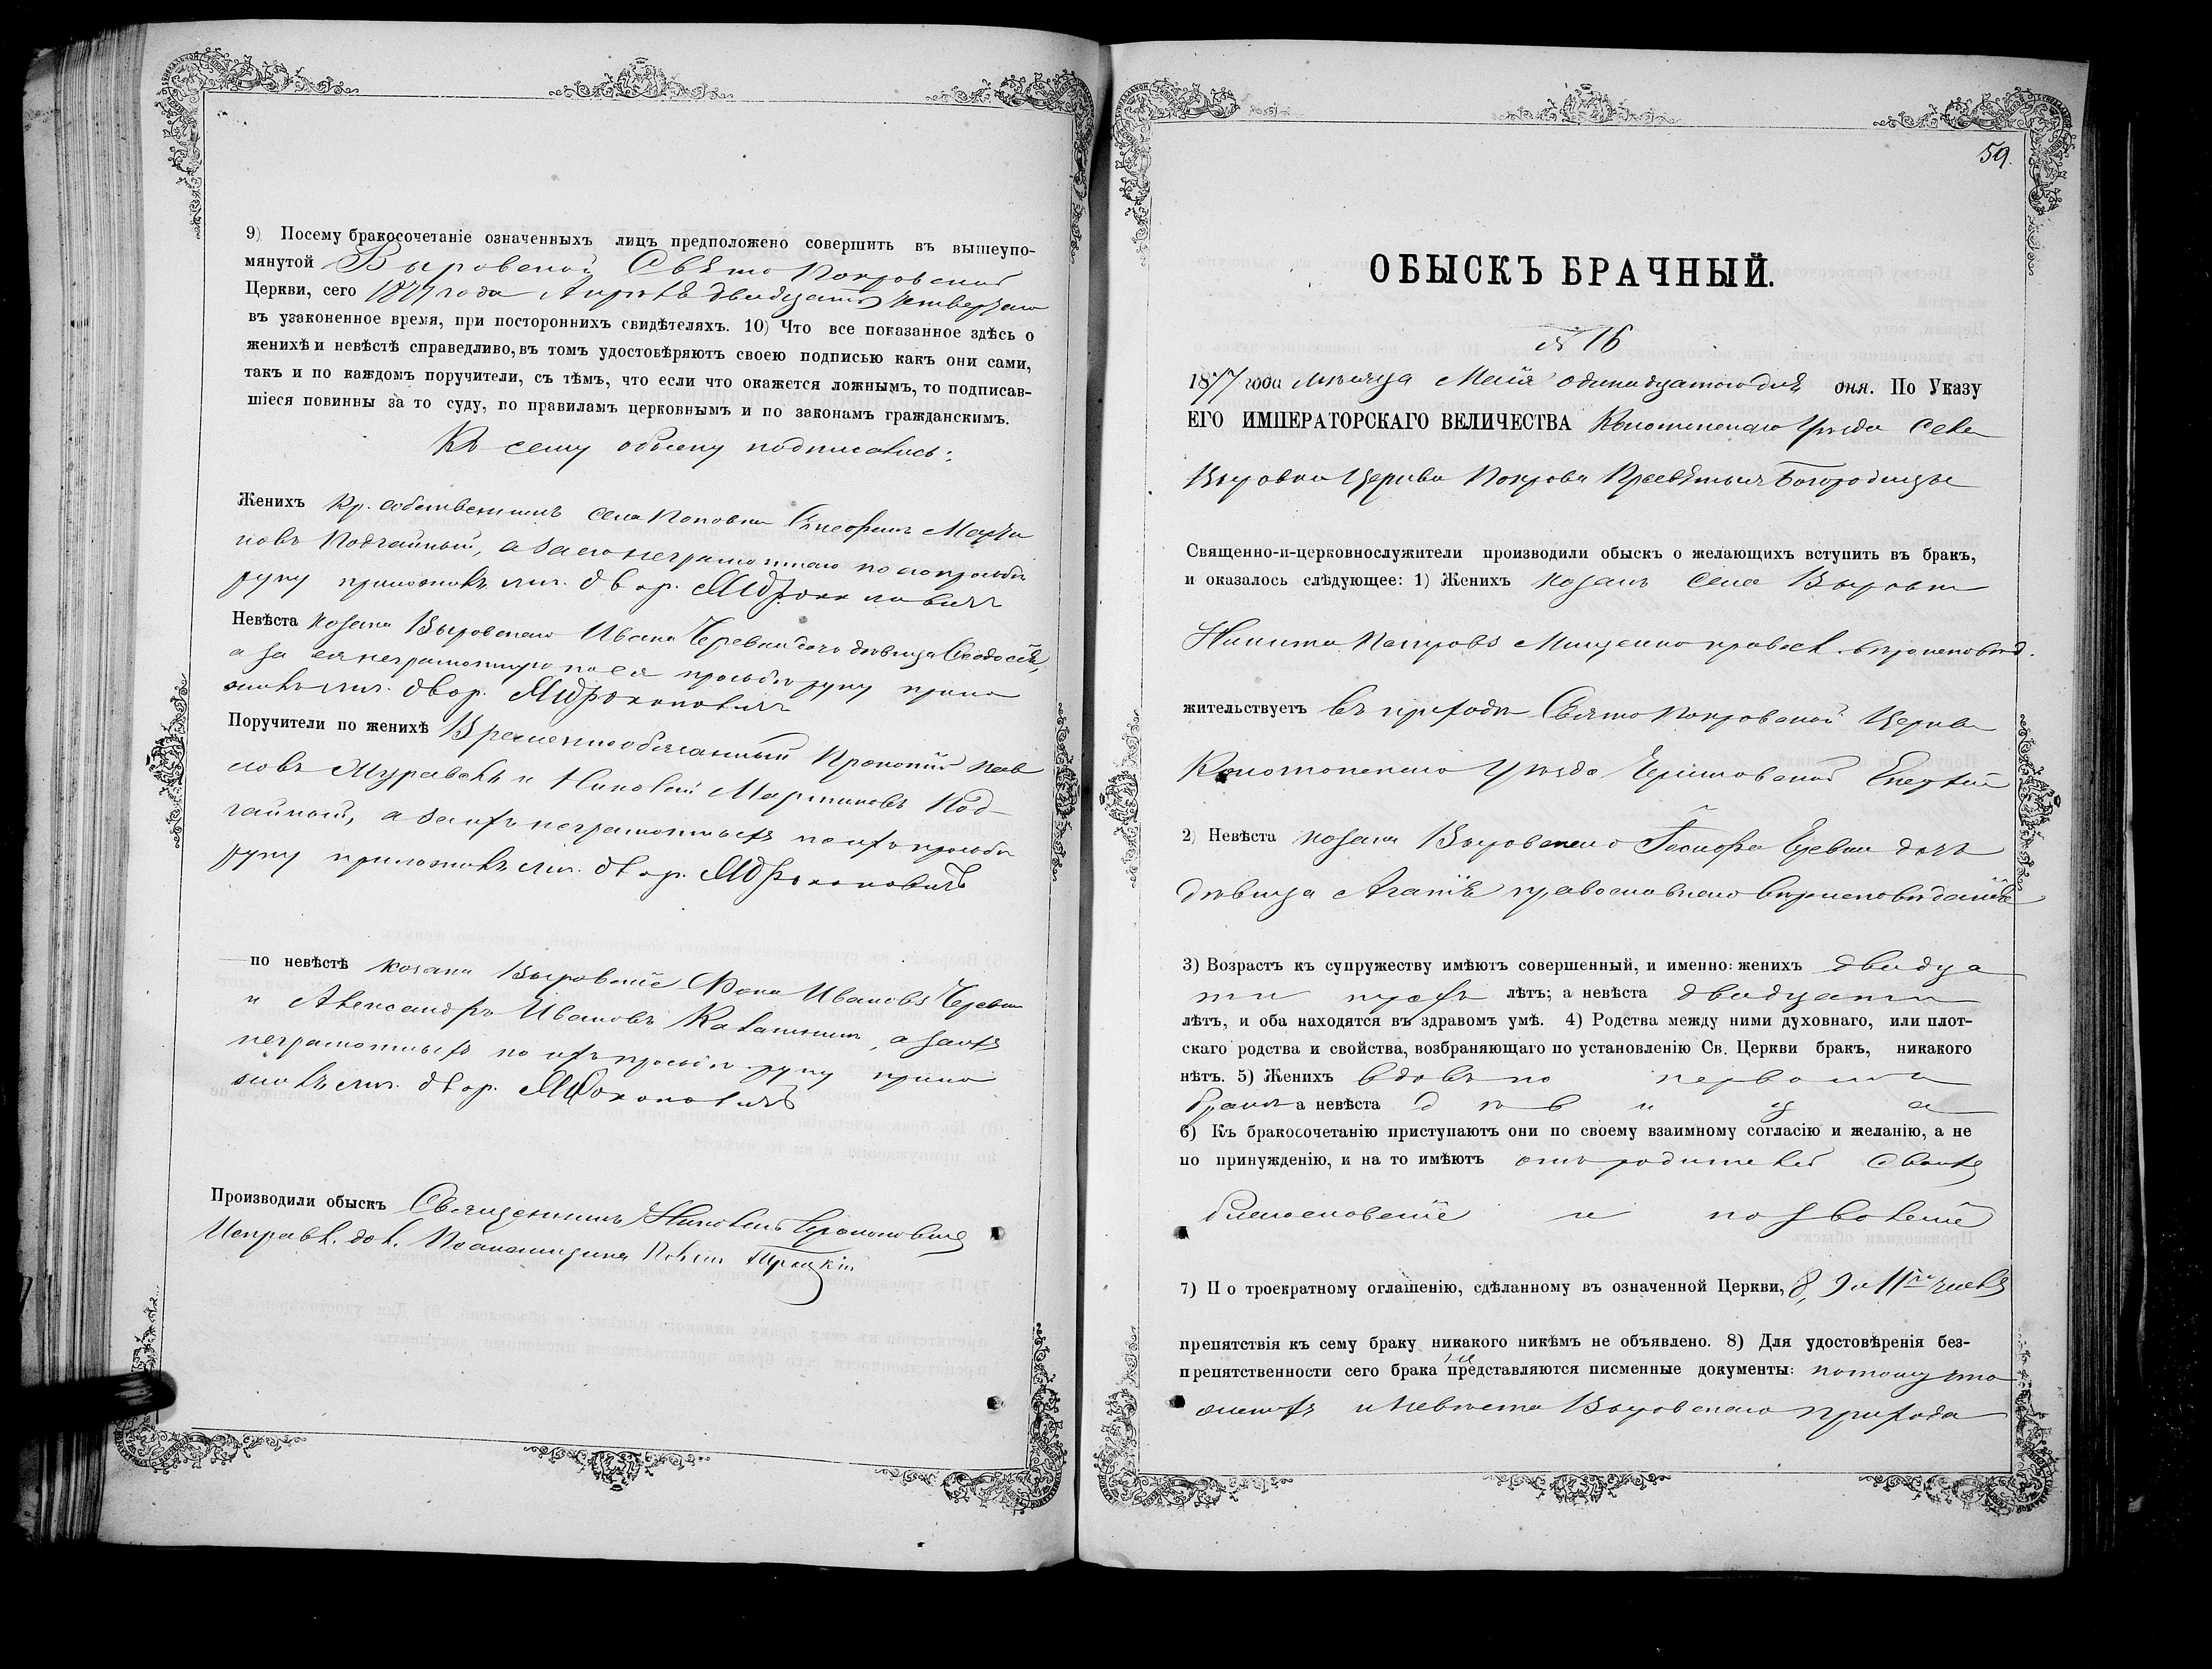 9) Посему бракосочетаніе означенныхъ лицъ предположено совершить въ вышеупо-
мянутой Выровской Свято Покровской
Церкви, сего 1877 года Апрѣля двадцать четвертаго
въ узаконенное время, при постороннихъ свидѣтеляхъ. 10) Что все показанное здѣсь о
женихѣ и невѣстѣ справедливо, въ томъ удостовѣряютъ своею подписью какъ они сами,
такъ и по каждомъ поручители, съ тѣмъ, что если что окажется ложнымъ, то подписав-
шіеся повинны за то суду, по правиламъ церковнымъ и по законамъ гражданскимъ.
Къ сему обыску подписались:
Женихъ Кр. собственникъ села Поповки Мартино
новъ Подгайный, а за его неграмотнаго по его просьбѣ
руку приложилъ двор.
Невѣста козака Выровскаго Ивана Черевка дочь дѣвица Ѳеодосія,
а за ея неграмотную по ея просьбѣ руку прило
жилъ двор.
Поручители по женихѣ Временнообязанный Прокопій Пав
ловъ Журавель и Николай Мартиновъ Под-
гайный, а за ихъ неграмотныхъ по ихъ просьбѣ
руку приложилъ двор.
по невѣстѣ козаки Выровскіе Фока Ивановъ Черевко
и Александръ Ивановъ Калашник, а за ихъ
неграмотныхъ по ихъ просьбѣ руку прило
жилъ двор.
Производили обыскъ Священникъ Николай
Исправл. дол. Псаломщика
59.
ОБЫСКЪ БРАЧНЫЙ.
№ 16
1877 года мѣсяца Маія одинадцатого дня дня. По Указу
ЕГО ИМПЕРАТОРСКАГО ВЕЛИЧЕСТВА Конотопскаго Уѣзда Села
Выровки Церкви Покрова Пресвятыя Богородицы
Священно-и-церковнослужители производили обыскъ о желающихъ вступить въ бракъ,
и оказалось слѣдующее: 1) Женихъ козакъ Села Выровки
Никита Петровъ Мищенко правосл. вѣроисповѣд.
жительствуетъ въ приходѣ Свято Покровской Церкви
Конотопскаго Уѣзда Черниговской Епархіи
2) Невѣста козака Выровскаго Іосифа Черевка дочь
дѣвица Агапія православнаго вѣроисповѣданія
3) Возрастъ къ супружеству имѣютъ совершенный, и именно: женихъ двадца
ти трехъ лѣтъ; а невѣста двадцати
лѣтъ, и оба находятся въ здравомъ умѣ. 4) Родства между ними духовнаго, или плот-
скаго родства и свойства, возбраняющаго по установленію Св. Церкви бракъ, никакого
нѣтъ. 5) Женихъ вдовъ по первомъ
бракѣ а невѣста дѣвица
6) Къ бракосочетанію приступаютъ они по своему взаимному согласію и желанію, а не
по принужденію, и на то имѣютъ отъ родителей своихъ
благословеніе и позволеніе
7) По троекратному оглашенію, сдѣланному въ означенной Церкви, 8, 9 и 11го числъ
препятствія къ сему браку никакого никѣмъ не объявлено. 8) Для удостовѣренія без-
препятственности сего брака не представляются писменные документы: потому что
женихъ и невѣста Выровскаго прихода